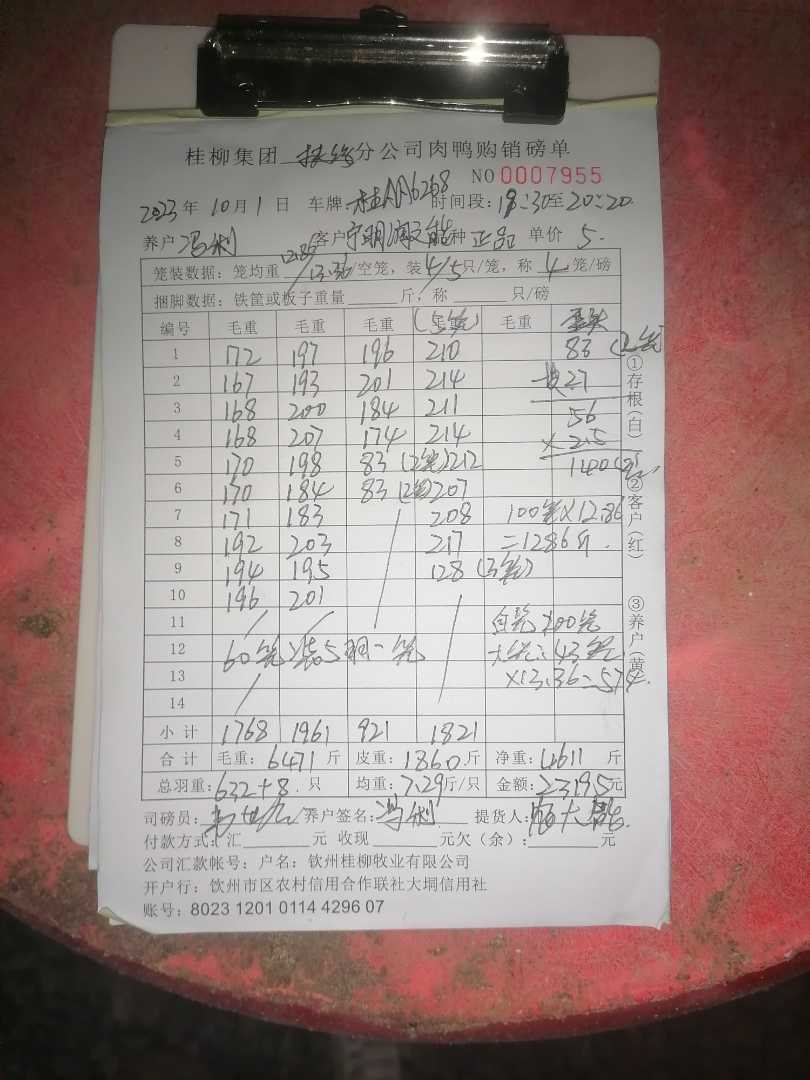 桂柳集团 扶绥 分公司肉鸭购销磅单
NO 0007955
2023 年 10 月 1 日 车牌: 时间段: 18:30至20:20
养户 冯利 客户 宁明 种 正品 单价 5.
笼装数据: 笼均重 12.86/13.36/空笼, 装4/5只/笼, 称 4 笼/磅
捆脚数据: 铁筐或板子重量______斤, 称______只/磅
编号 毛重 毛重 毛重 (5笼) 毛重
1 172 197 196 210 83 (2笼)
2 167 193 201 214 27
3 168 200 184 211 56
4 168 207 174 214 ×2.5
5 170 198 83 (2笼) 212 140
6 170 184 83 (2笼) 207
7 171 183 208 100笼×12.86
8 192 203 217 =1286斤.
9 194 195 128 (3笼)
10 196 201
11 100笼
12 60笼装5羽一笼 43笼
13 ×13.36=574.
14
小计 1768 1961 921 1821
合计 毛重: 6471 斤 皮重: 1860 斤 净重: 4611 斤
总羽重: 632+8. 只 均重: 7.29斤/只 金额: 23195元
司磅员: 养户签名: 冯利 提货人:
付款方式: 汇______元 收现______元欠(余):______元
公司汇款帐号: 户名: 钦州桂柳牧业有限公司
开户行: 钦州市区农村信用合作联社大垌信用社
账号: 8023 1201 0114 4296 07
①存根(白)
②客户(红)
③养户(黄